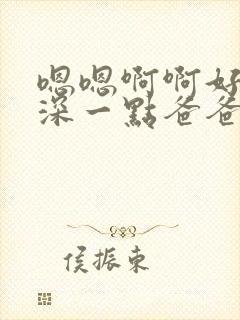 嗯嗯啊啊好
深一點爸爸
侯振東